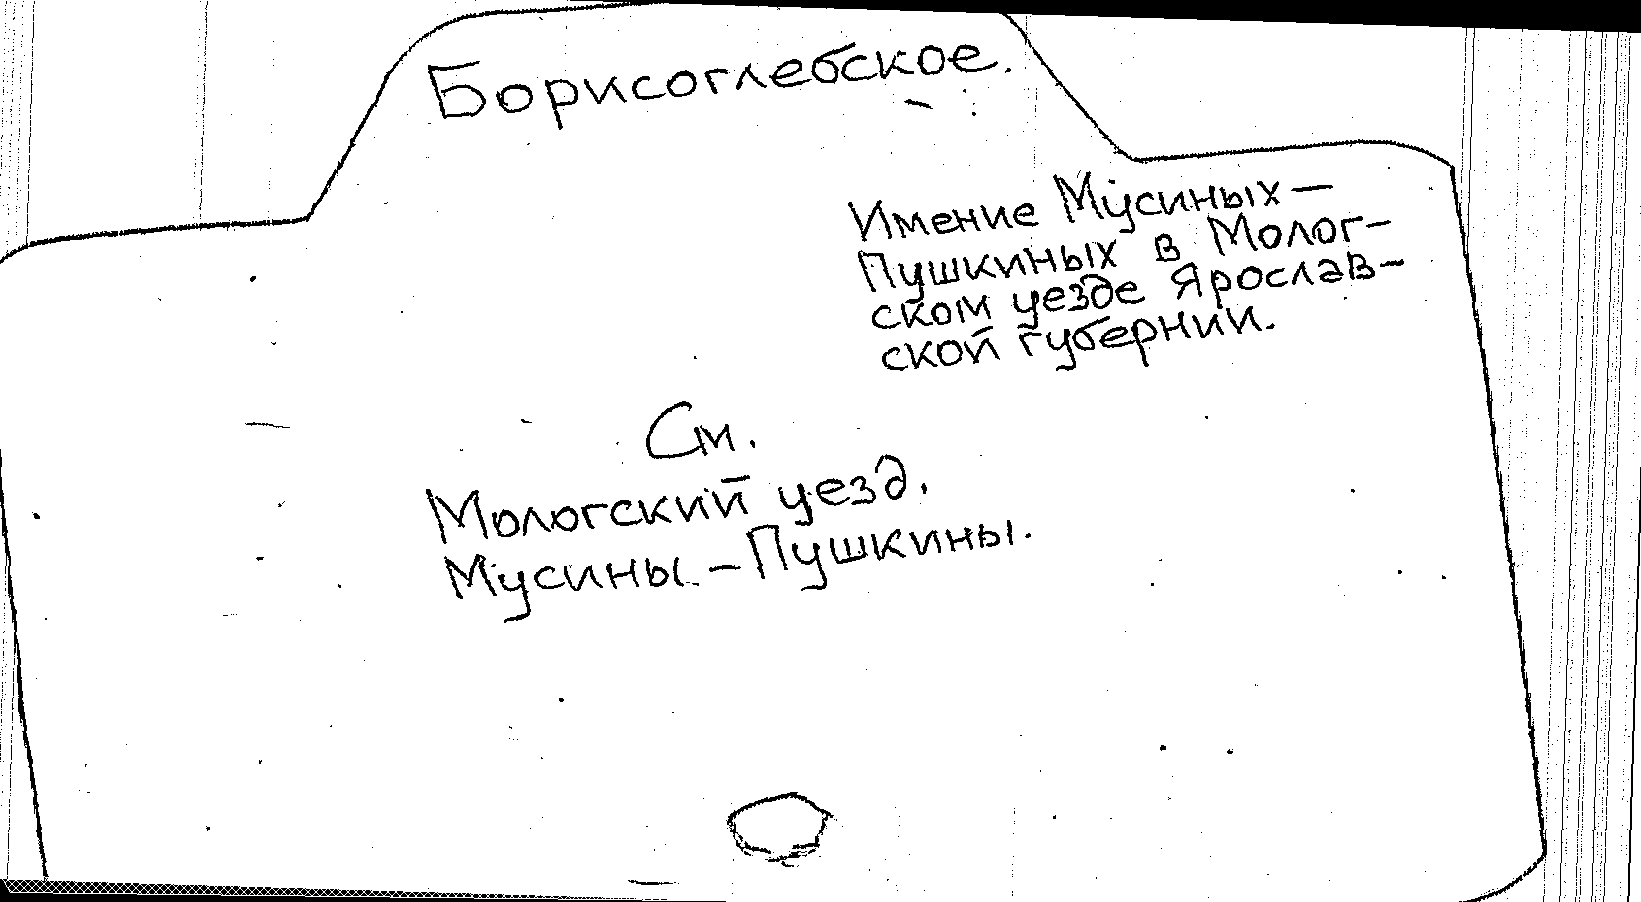 Борисоглебское.
Имение Мусиных –
Пушкиных в Молог-
ском уезде Ярослав-
ской губернии.
См.
Мологский уезд.
Мусины. – Пушкины.